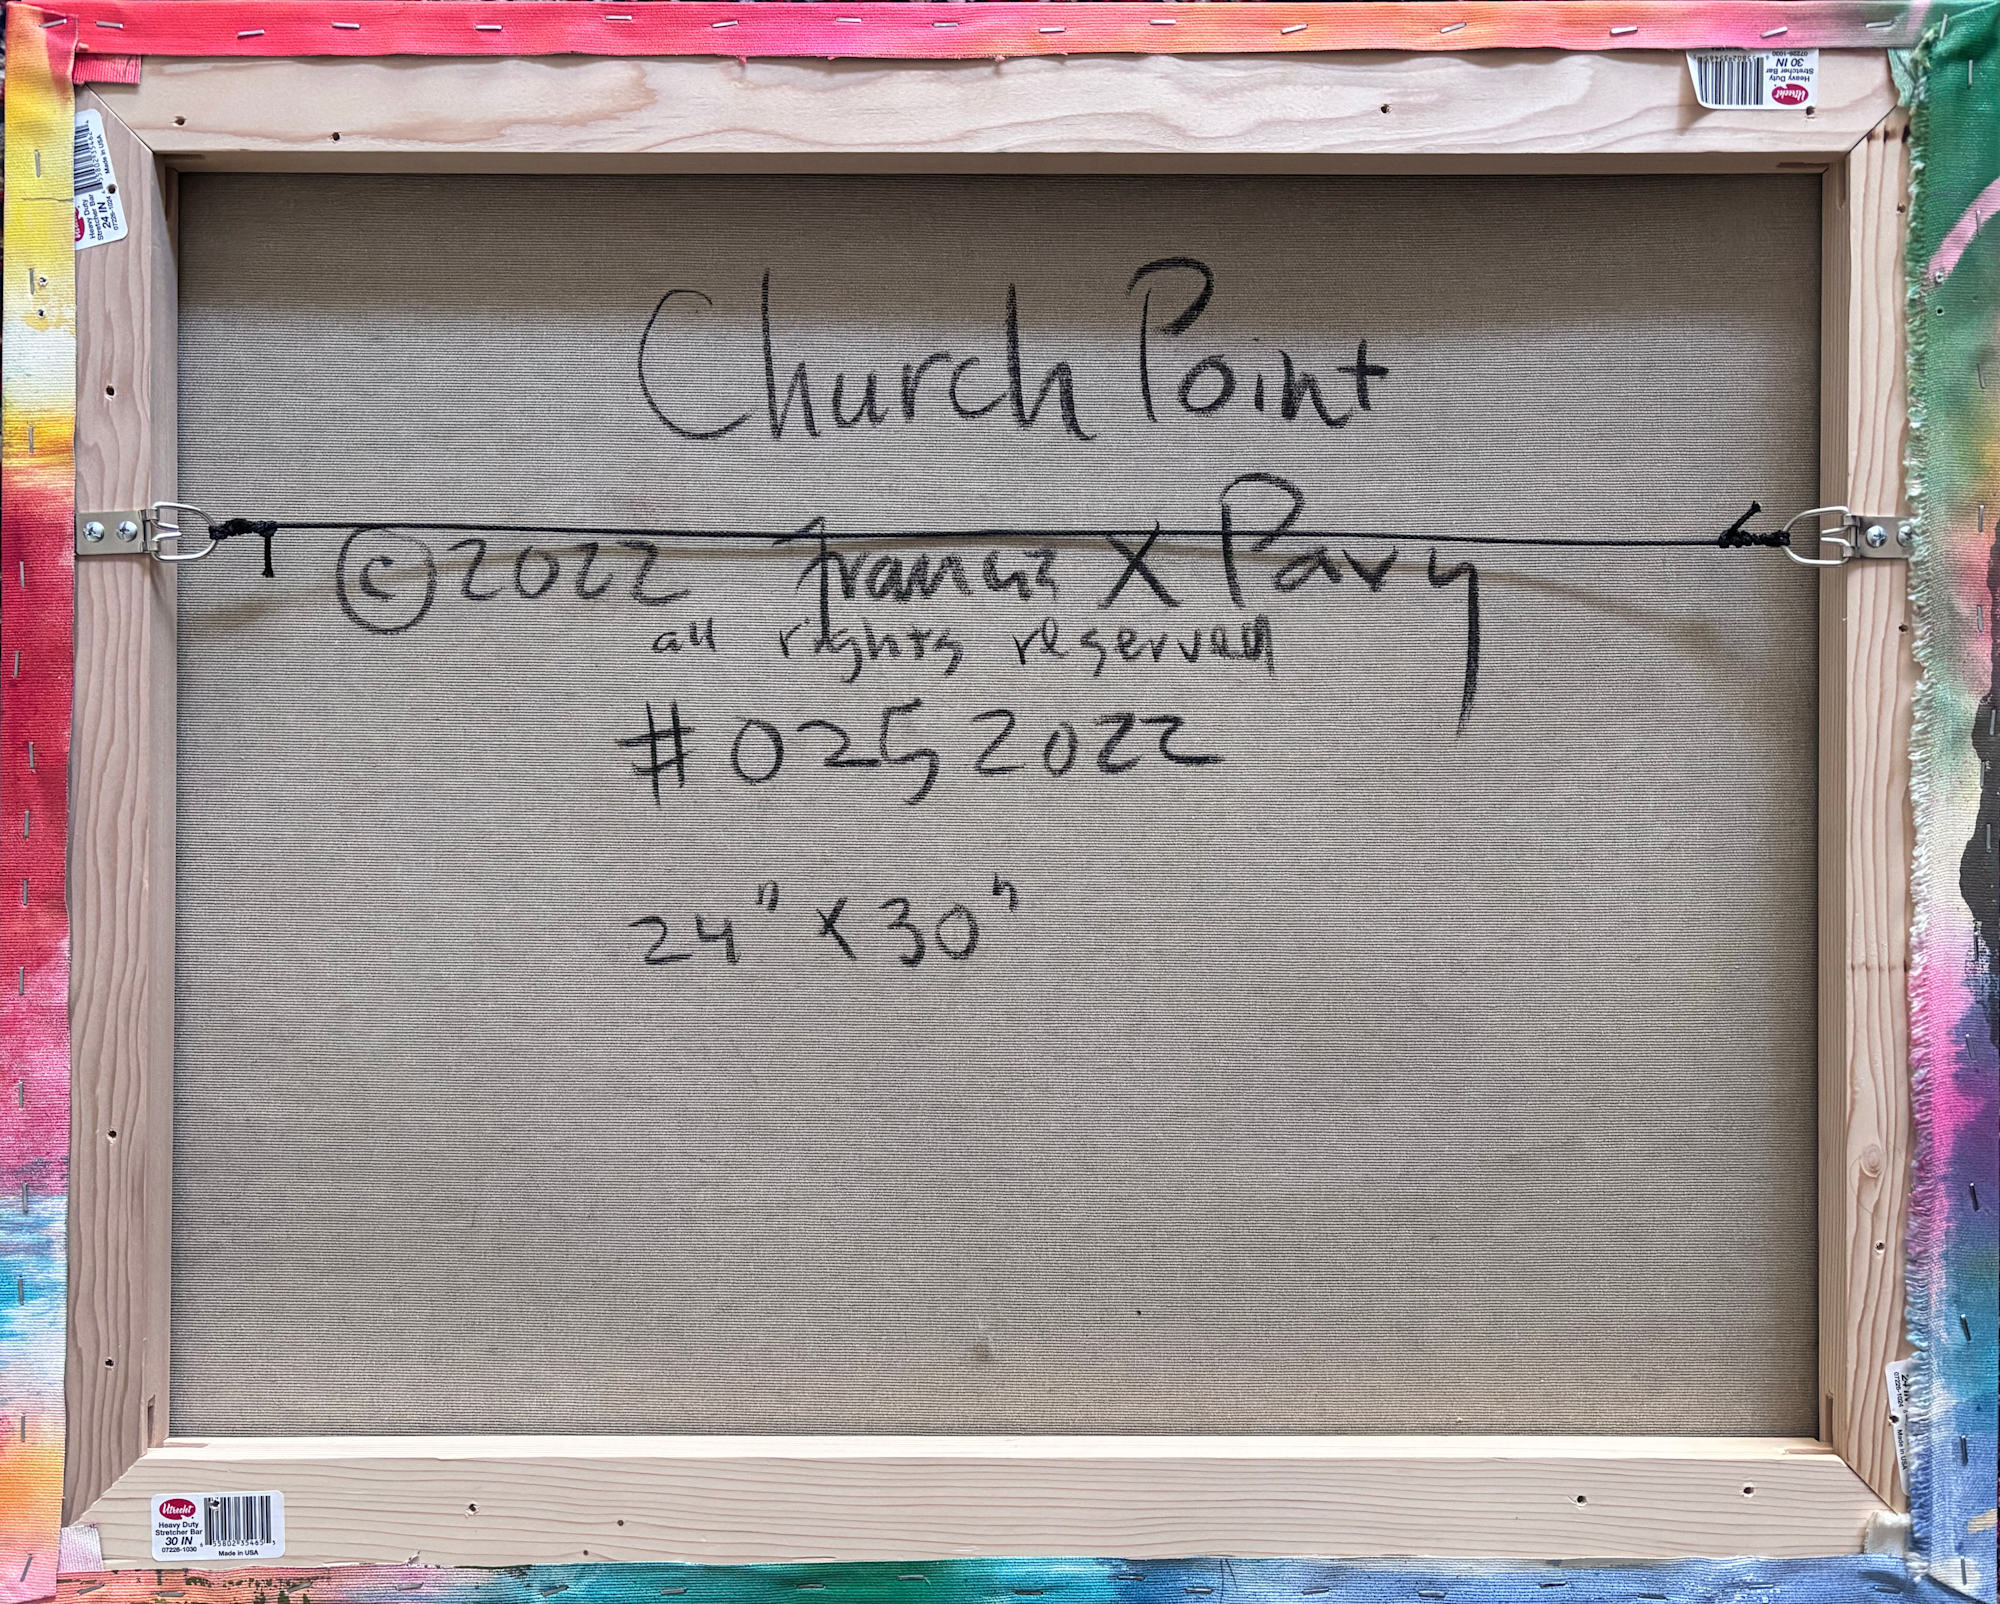 Church Point
©2022 Francis X Pavy
all rights reserved
#025 2022
24" x 30"
Utrecht
Heavy Duty
Stretcher Bar
30 IN
07226-1030
Made in USA
Utrecht
Heavy Duty
Stretcher Bar
30 IN
07226-1030
Heavy Duty
Stretcher Bar
24 IN
07226-1024
Made in USA
24 IN
07226-1024
Made in USA